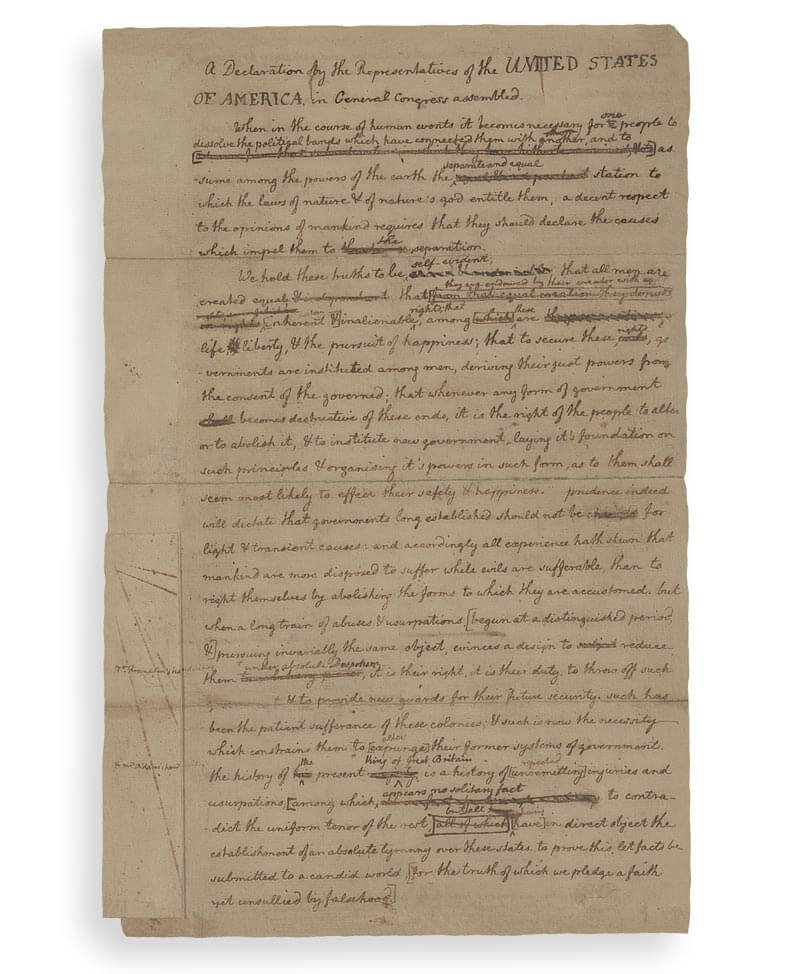 A Declaration by the Representatives of the UNITED STATES
OF AMERICA, in General Congress assembled.
When in the course of human events it becomes necessary for one people to
dissolve the political bands which have connected them with another, and to as
-sume among the powers of the earth the separate and equal station to
which the laws of nature & of nature's god entitle them, a decent respect
to the opinions of mankind requires that they should declare the causes
which impel them to the separation.
We hold these truths to be self-evident; that all men are
created equal & independent that they are endowed by their creator with
[from that equal creation they derive
rights; that these
inherent & inalienable, among [which] are
life & liberty, & the pursuit of happiness; that to secure these rights, go
-vernments are instituted among men, deriving their just powers from
the consent of the governed; that whenever any form of government
shall becomes destructive of these ends, it is the right of the people to alter
or to abolish it, & to institute new government, laying it's foundation on
such principles & organising it's powers in such form, as to them shall
seem most likely to effect their safety & happiness. prudence indeed
will dictate that governments long established should not be changed for
light & transient causes: and accordingly all experience hath shewn that
mankind are more disposed to suffer while evils are sufferable, than to
right themselves by abolishing the forms to which they are accustomed. but
when a long train of abuses & usurpations, [begun at a distinguished period,
&] pursuing invariably the same object, evinces a design to subject reduce
them under absolute Despotism, it is their right, it is their duty, to throw off such
& to provide new guards for their future security. such has
been the patient sufferance of these colonies; & such is now the necessity
which constrains them to alter [expunge] their former systems of government.
the history of the present King of Great Britain is a history of repeated [unremitting] injuries and
usurpations, [among which, appears no solitary fact to contra-
-dict the uniform tenor of the rest, but all [all of which] [have] in direct object the
establishment of an absolute tyranny over these states. to prove this, let facts be
submitted to a candid world, [for the truth of which we pledge a faith
yet unsullied by falsehood.]